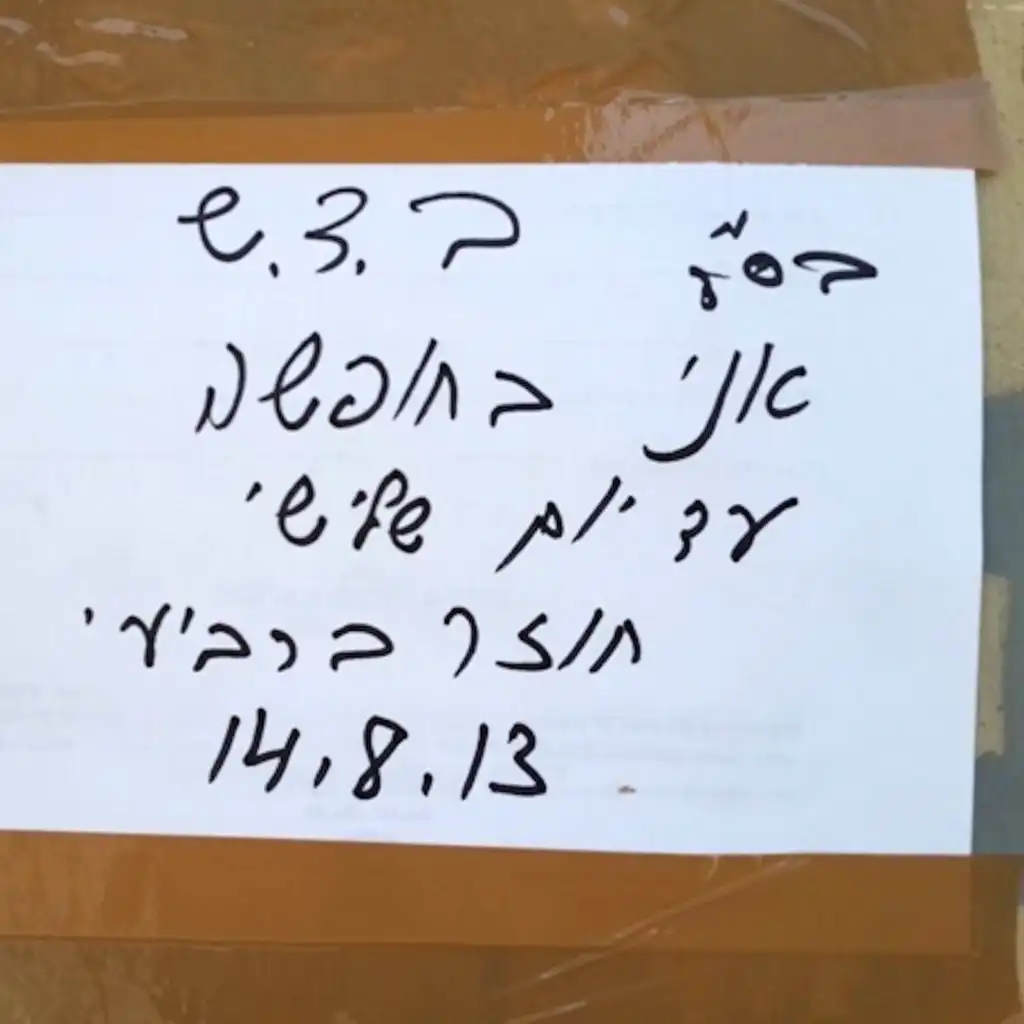 בס"ד
ב.צ.ש
אני בחופשה
עד יום שלישי
חוזר ברביעי
14.8.13